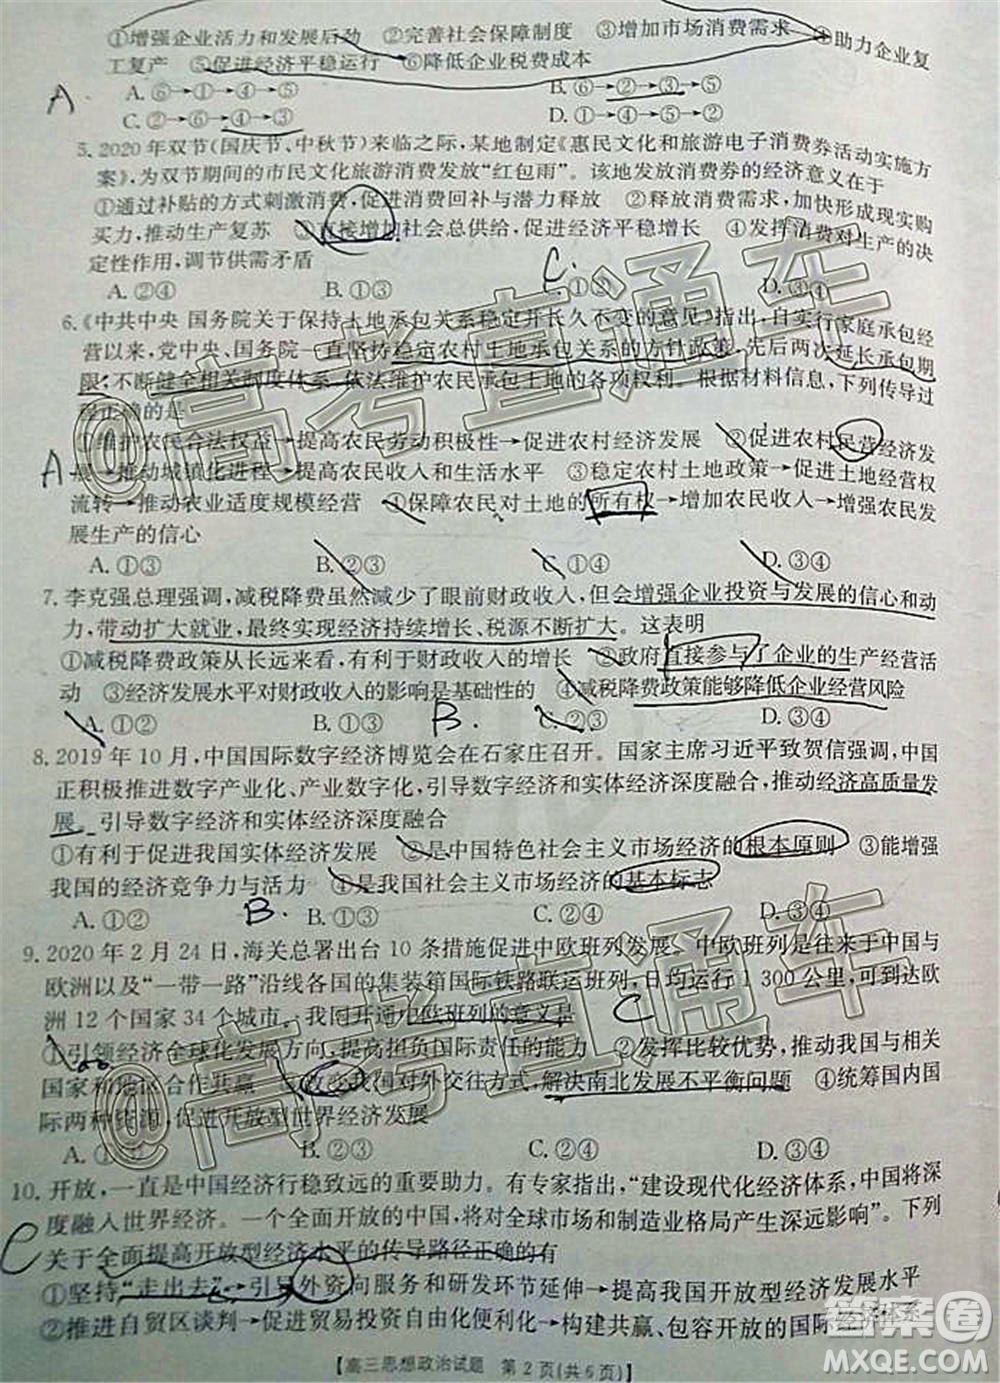 ①增强企业活力和发展后劲　②完善社会保障制度　③增加市场消费需求　④助力企业复
工复产　⑤促进经济平稳运行　⑥降低企业税费成本
A. ⑥→①→④→⑤　B. ⑥→②→③→⑤
A
C. ②→⑥→④→③　D. ②→④→①→⑤
5. 2020年双节(国庆节、中秋节)来临之际,某地制定《惠民文化和旅游电子消费券活动实施方
案》,为双节期间的市民文化旅游消费发放“红包雨”。该地发放消费券的经济意义在于
①通过补贴的方式刺激消费,促进消费回补与潜力释放　②释放消费需求,加快形成现实购
买力,推动生产复苏　③直接增加社会总供给,促进经济平稳增长　④发挥消费对生产的决
定性作用,调节供需矛盾
A. ②④　B. ①③　C. ①②　D. ③④
C.
6.《中共中央 国务院关于保持土地承包关系稳定并长久不变的意见》指出,自实行家庭承包经
营以来,党中央、国务院一直坚持稳定农村土地承包关系的方针政策,先后两次延长承包期
限,不断健全相关制度体系,依法维护农民承包土地的各项权利。根据材料信息,下列传导过
程正确的是
①维护农民合法权益→提高农民劳动积极性→促进农村经济发展　②促进农村民营经济发
展→推动城镇化进程→提高农民收入和生活水平　③稳定农村土地政策→促进土地经营权
A
流转→推动农业适度规模经营　④保障农民对土地的所有权→增加农民收入→增强农民发
展生产的信心
A. ①③　B. ①②　C. ②④　D. ③④
7. 李克强总理强调,减税降费虽然减少了眼前财政收入,但会增强企业投资与发展的信心和动
力,带动扩大就业,最终实现经济持续增长、税源不断扩大。这表明
①减税降费政策从长远来看,有利于财政收入的增长　②政府直接参与了企业的生产经营活
动　③经济发展水平对财政收入的影响是基础性的　④减税降费政策能够降低企业经营风险
A. ①②　B. ①③　C. ②③　D. ③④
B.
8. 2019年10月,中国国际数字经济博览会在石家庄召开。国家主席习近平致贺信强调,中国
正积极推进数字产业化、产业数字化,引导数字经济和实体经济深度融合,推动经济高质量发
展。引导数字经济和实体经济深度融合
①有利于促进我国实体经济发展　②是中国特色社会主义市场经济的根本原则　③能增强
我国的经济竞争力与活力　④是我国社会主义市场经济的基本标志
A. ①②　B. ①③　C. ②④　D. ③④
B.
9. 2020年2月24日,海关总署出台10条措施促进中欧班列发展。中欧班列是往来于中国与
欧洲以及“一带一路”沿线各国的集装箱国际铁路联运班列,日均运行1 300公里,可到达欧
洲12个国家34个城市。我国开通中欧班列的意义是
C
①引领经济全球化发展方向,提高担负国际责任的能力　②发挥比较优势,推动我国与相关
国家和地区合作共赢　③改变我国对外交往方式,解决南北发展不平衡问题　④统筹国内国
际两种资源,促进开放型世界经济发展
A. ①③　B. ②③　C. ②④　D. ①④
10. 开放,一直是中国经济行稳致远的重要助力。有专家指出,“建设现代化经济体系,中国将深
度融入世界经济。一个全面开放的中国,将对全球市场和制造业格局产生深远影响”。下列
C
关于全面提高开放型经济水平的传导路径正确的有
①坚持“走出去”→引导外资向服务和研发环节延伸→提高我国开放型经济发展水平
②推进自贸区谈判→促进贸易投资自由化便利化→构建互利共赢的国际经济体系
【高三思想政治试题　第2页(共6页)】
@高考直通车
@高考直通车
答案卷
MXQE.COM